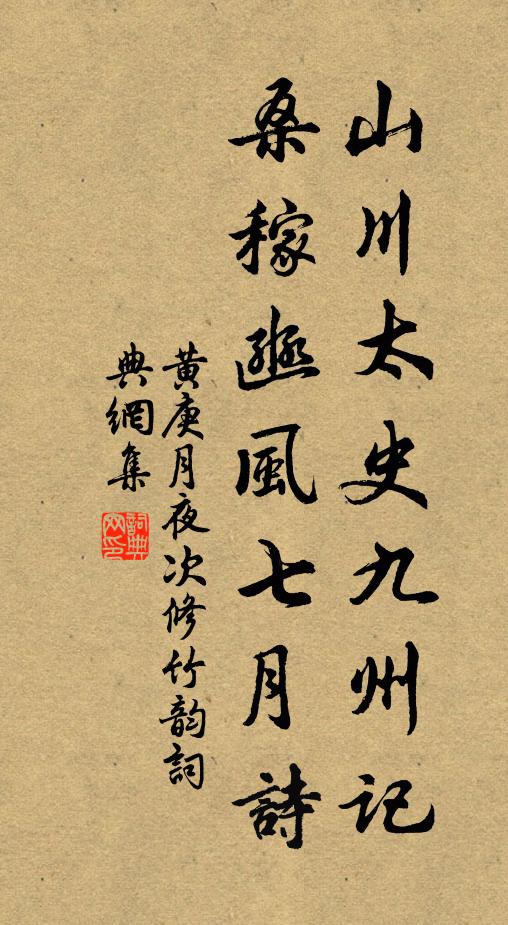 山川太史九州記
桑稼豳風七月詩
黄庚月夜次修竹韵詞
典網集
詞典網印